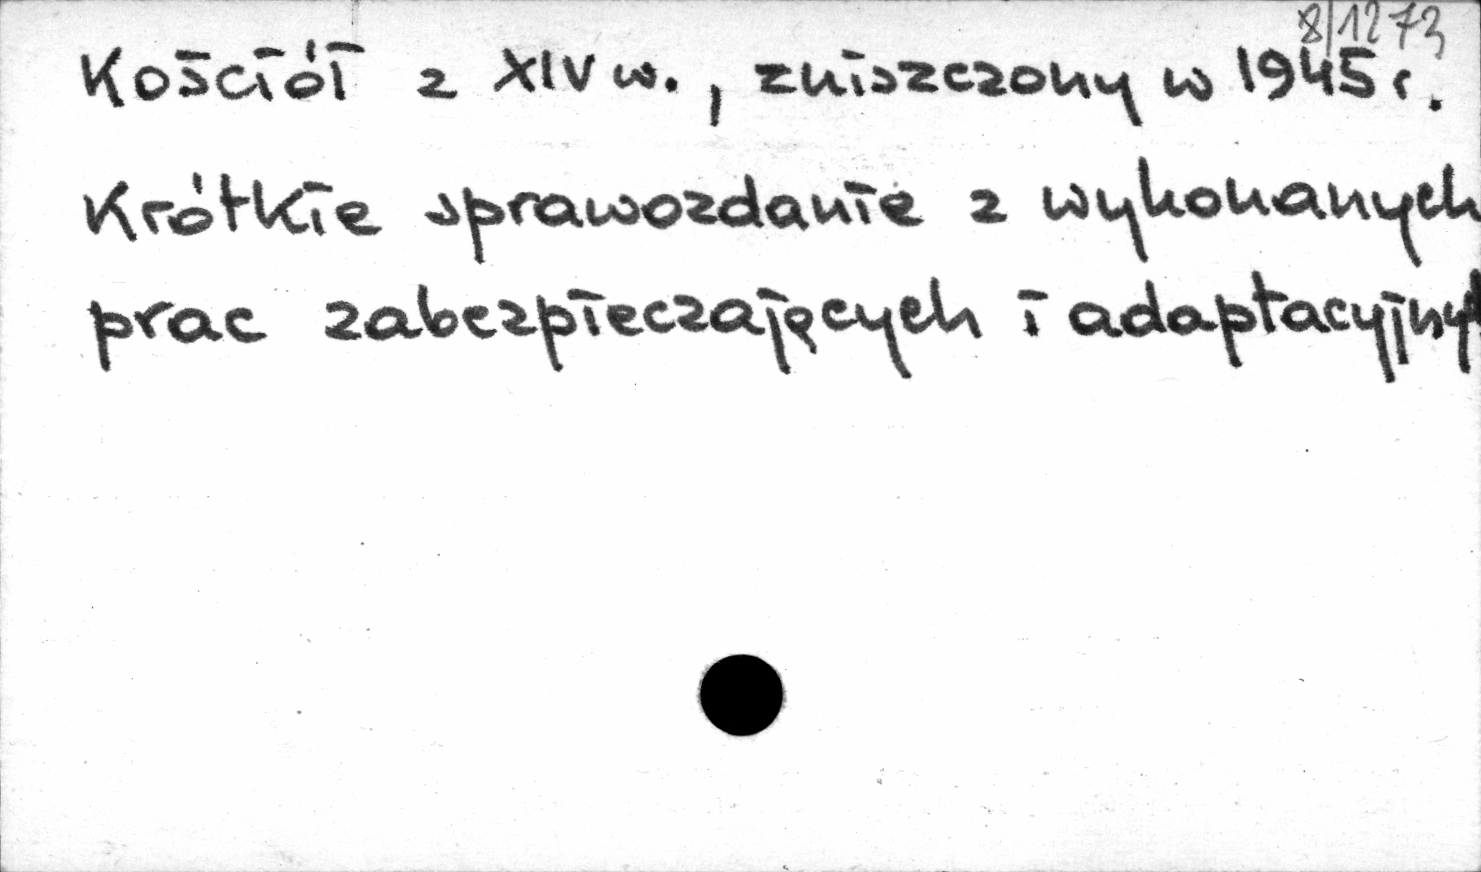 8/1273
Kościół z XIV w., zniszczony w 1945 r.
Krótkie sprawozdanie z wykonanych
prac zabezpieczających i adaptacyjny